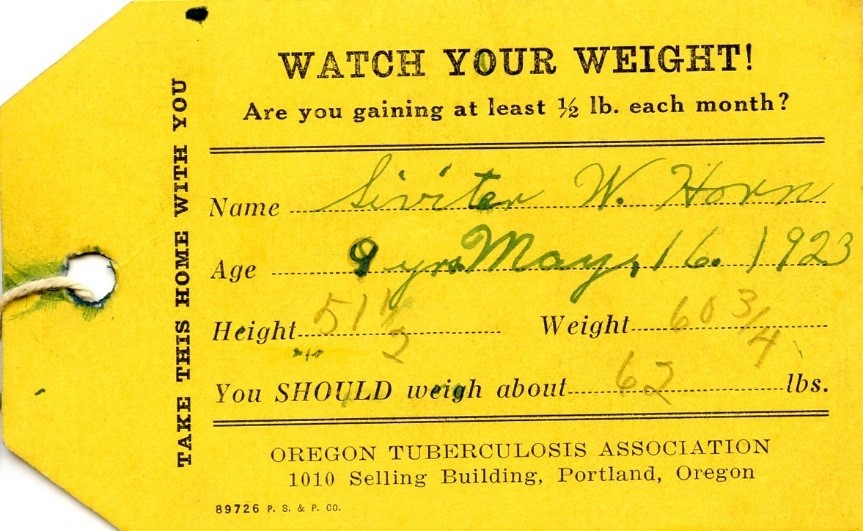 WATCH YOUR WEIGHT!
Are you gaining at least ½ lb. each month?
TAKE THIS HOME WITH YOU
Name Siviter W. Horn
Age 9 yrs. May, 16. 1923
Height 51 ½ Weight 60 3/4
You SHOULD weigh about 62 lbs.
OREGON TUBERCULOSIS ASSOCIATION
1010 Selling Building, Portland, Oregon
89726 P. S. & P. CO.